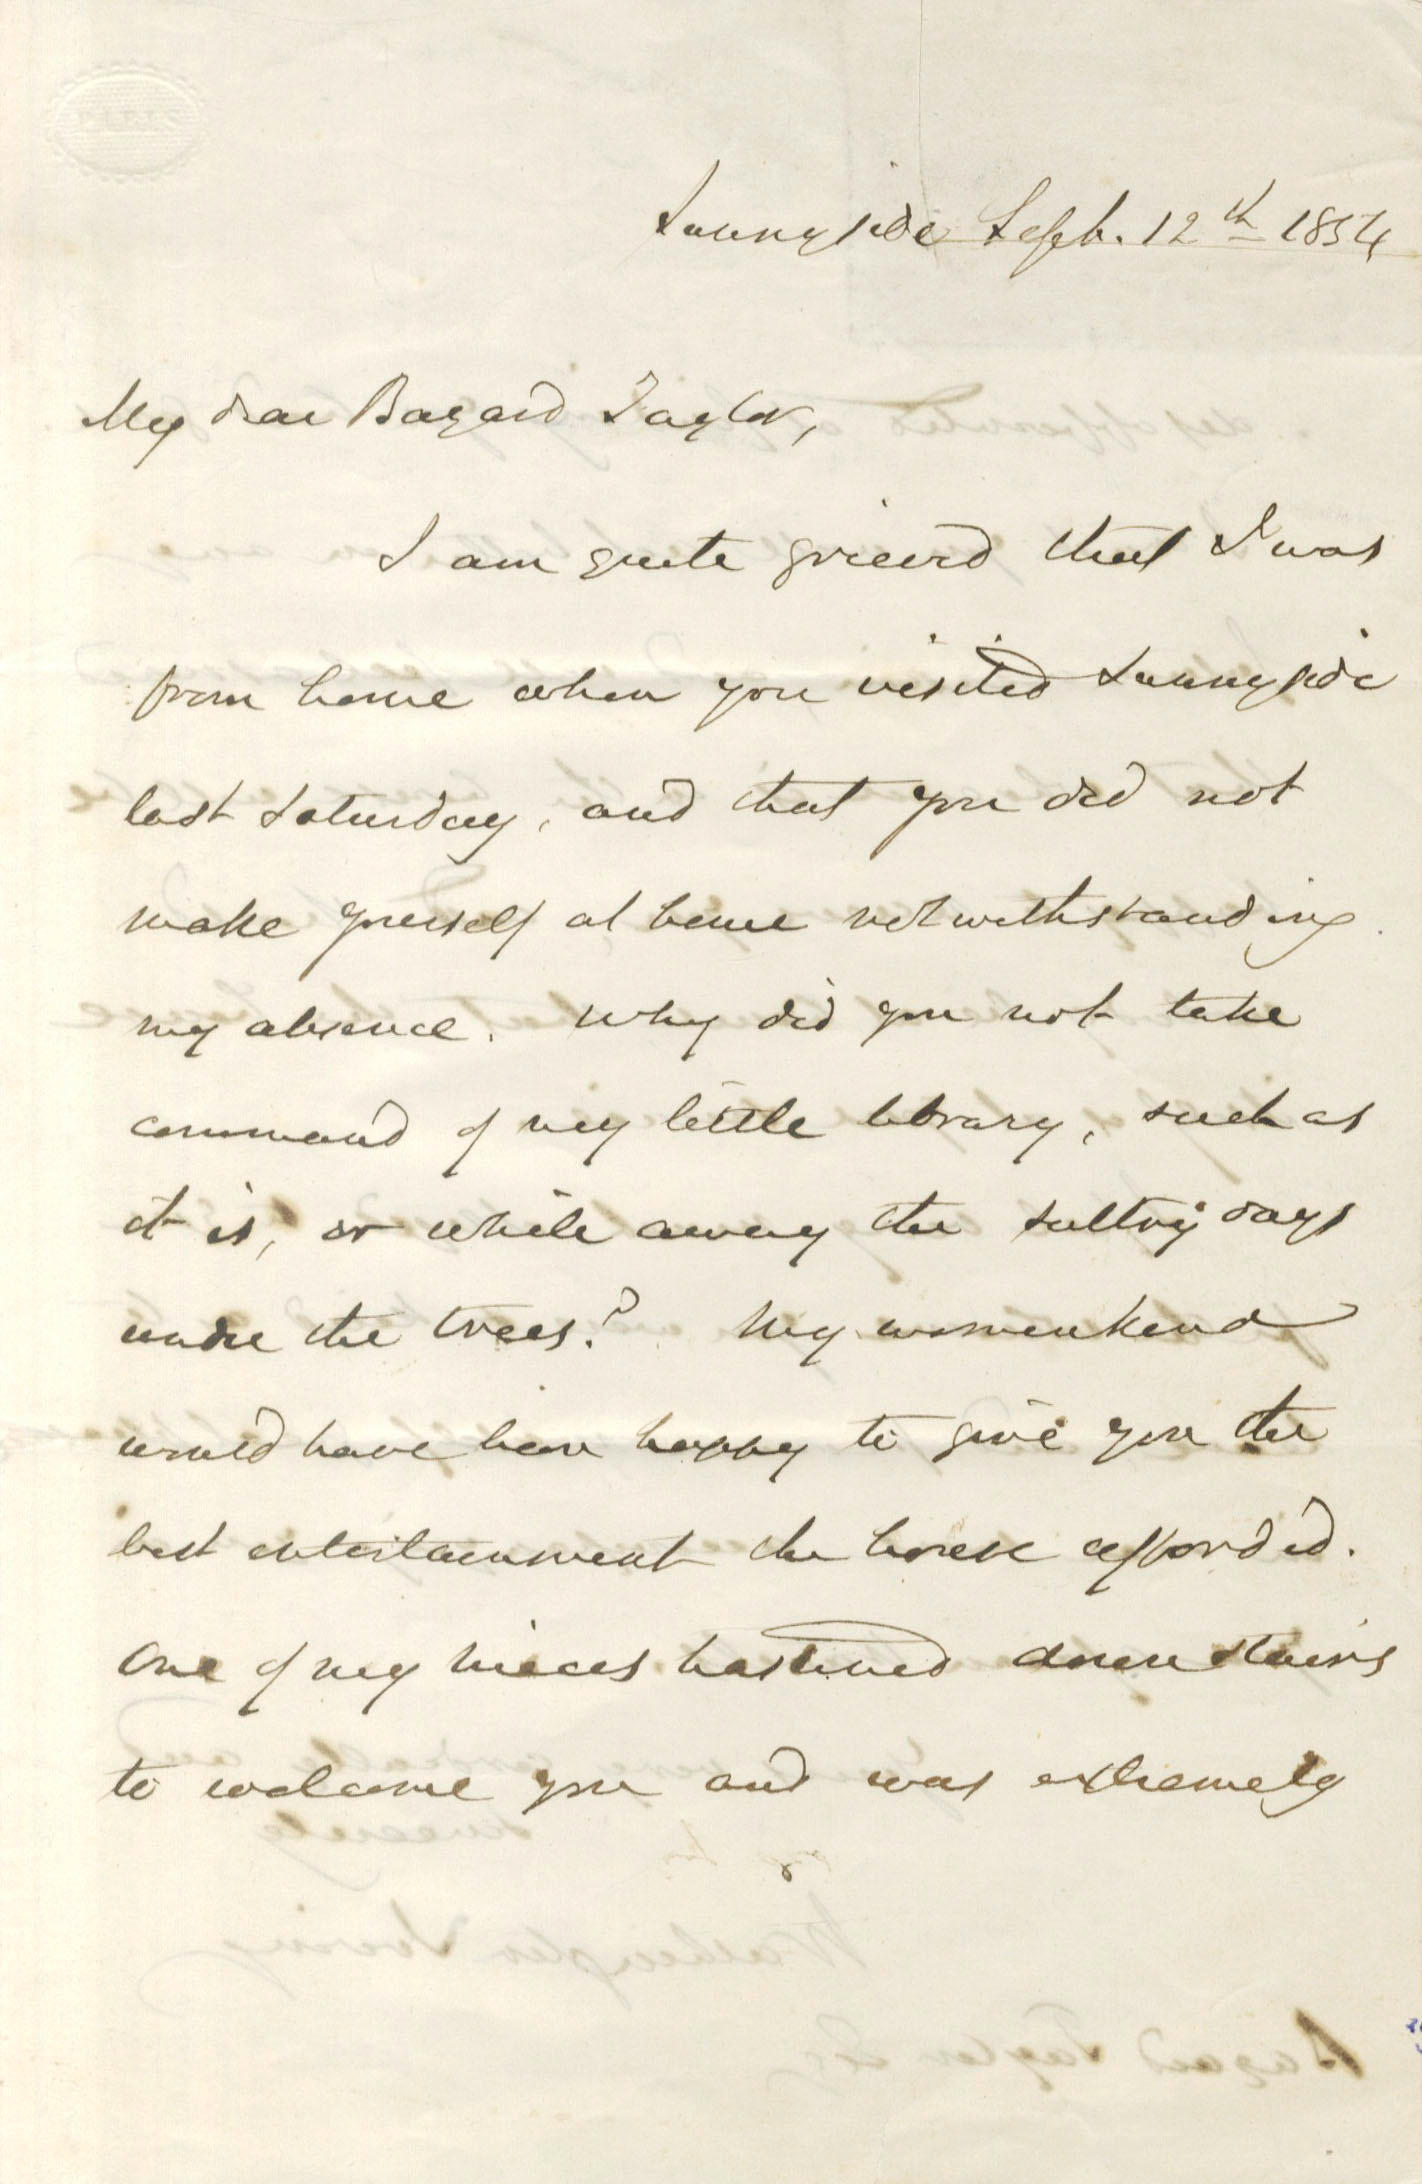 Sunnyside Sept. 12th 1854
My dear Bayard Taylor,
I am quite grieved that I was
from home when you visited Sunnyside
last Saturday, and that you did not
make yourself at home notwithstanding
my absence. Why did you not take
command of my little library, such as
it is, or while away the sultry days
under the trees? My womenkind
would have been happy to give you the
best entertainment the house afforded.
One of my nieces hastened down stairs
to welcome you and was extremely